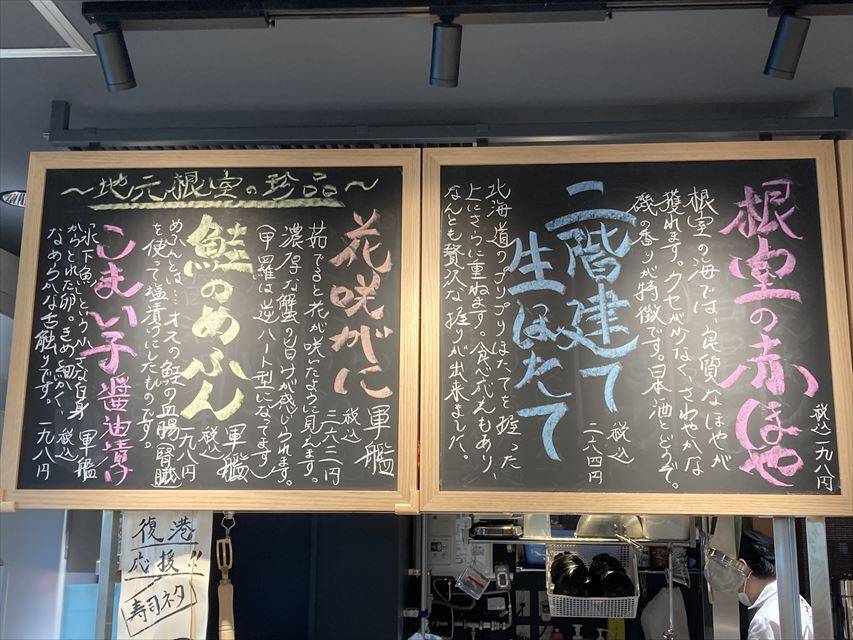 ～地元根室の珍品～
花咲がに
軍艦
税込
二六二円
茹でると花が咲いたように見えます。
濃厚な蟹の旨けが感じられます。
(甲羅は逆ハート型になってます)
鮭のめふん
軍艦
税込
一九八円
めふんとは…オスの鮭の血腸(腎臓)
を使って塩漬けにしたものです。
こまい子醤油漬け
軍艦
税込
一九八円
氷下魚という小さな白身
からとれた卵。きめ細かく、
なめらかな舌触りです。
根室の赤ほや
税込一九八円
根室の海では、良質なほやが
獲れます。クセが少なく、さわやかな
磯の香りが特徴です。日本酒とどうぞ。
二階建て
生ほたて
税込
二八四円
北海道のプリプリほたてを握った
上にさらに重ねます。食べ応えもあり、
なんとも贅沢な握りが出来ました。
復港
応援!!
寿司ネタ